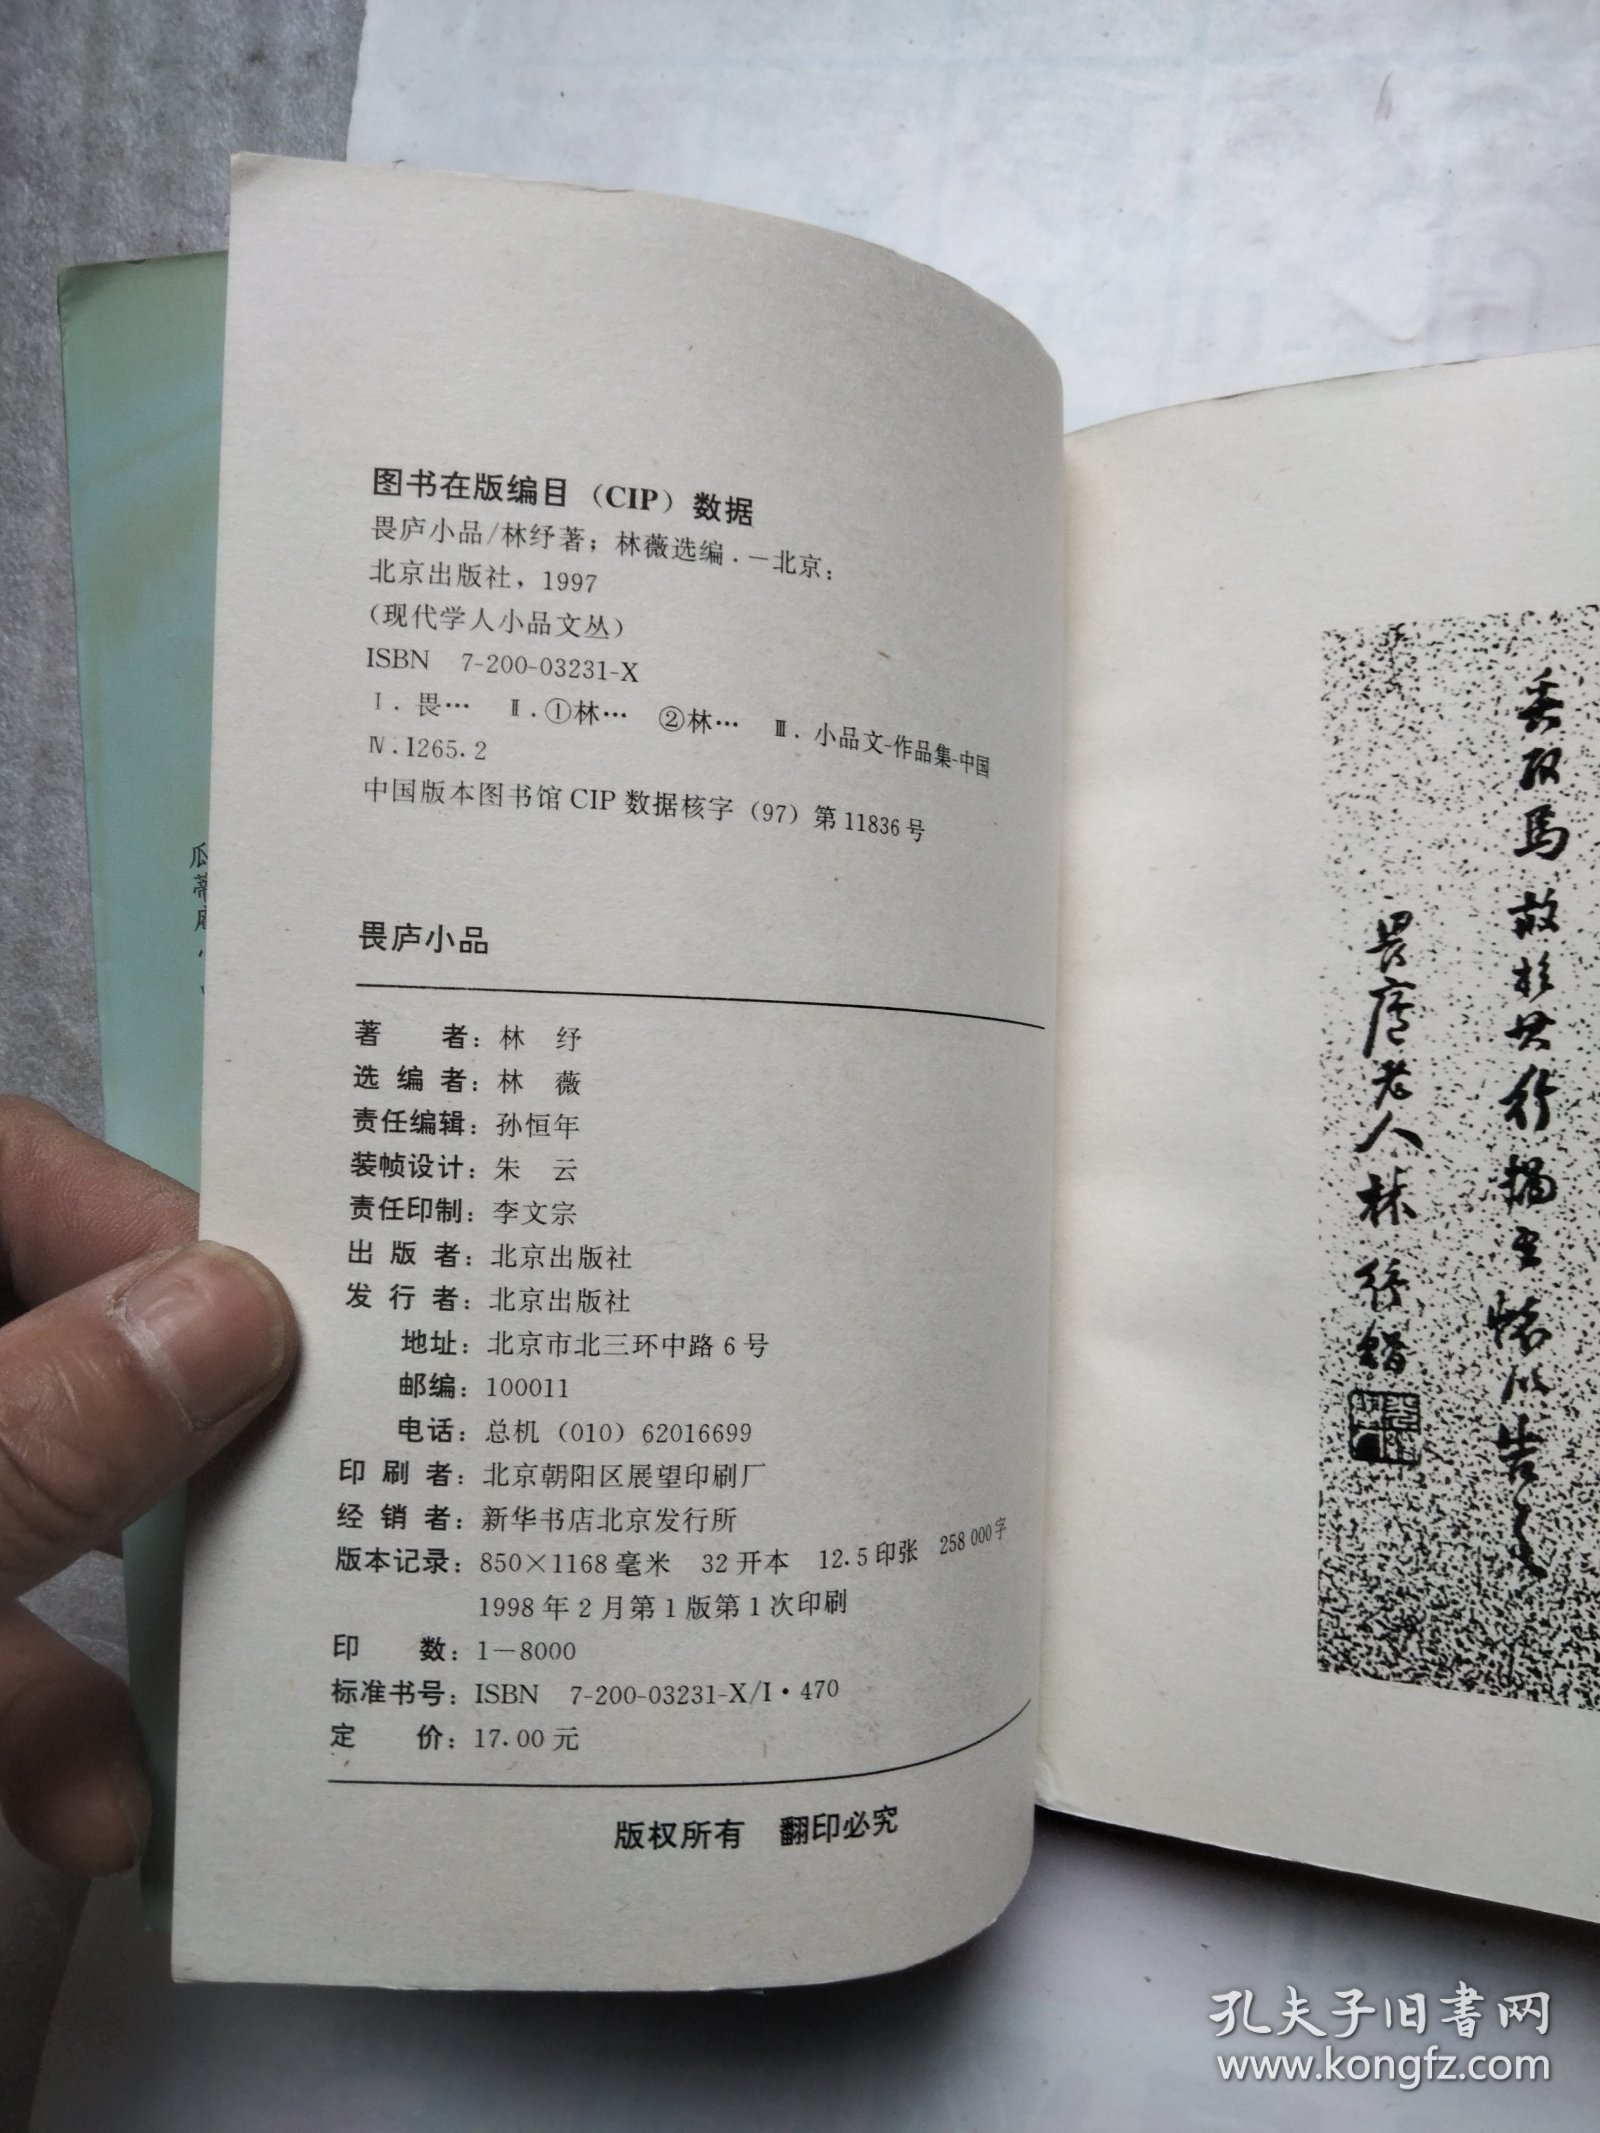 图书在版编目（CIP）数据
畏庐小品/林纾著；林薇选编.－北京：
北京出版社，1997
（现代学人小品文丛）
ISBN 7-200-03231-X
Ⅰ.畏… Ⅱ.①林… ②林… Ⅲ.小品文-作品集-中国
Ⅳ.I265.2
中国版本图书馆CIP数据核字（97）第11836号
畏庐小品
著 者：林 纾
选 编 者：林 薇
责任编辑：孙恒年
装帧设计：朱 云
责任印制：李文宗
出 版 者：北京出版社
发 行 者：北京出版社
地址：北京市北三环中路6号
邮编：100011
电话：总机（010）62016699
印 刷 者：北京朝阳区展望印刷厂
经 销 者：新华书店北京发行所
版本记录：850×1168毫米 32开本 12.5印张 258 000字
1998年2月第1版第1次印刷
印 数：1－8000
标准书号：ISBN 7-200-03231-X/I·470
定 价：17.00元
版权所有 翻印必究
瓜蒂庵小
畏廬老人林纾
孔夫子旧書网
www.kongfz.com